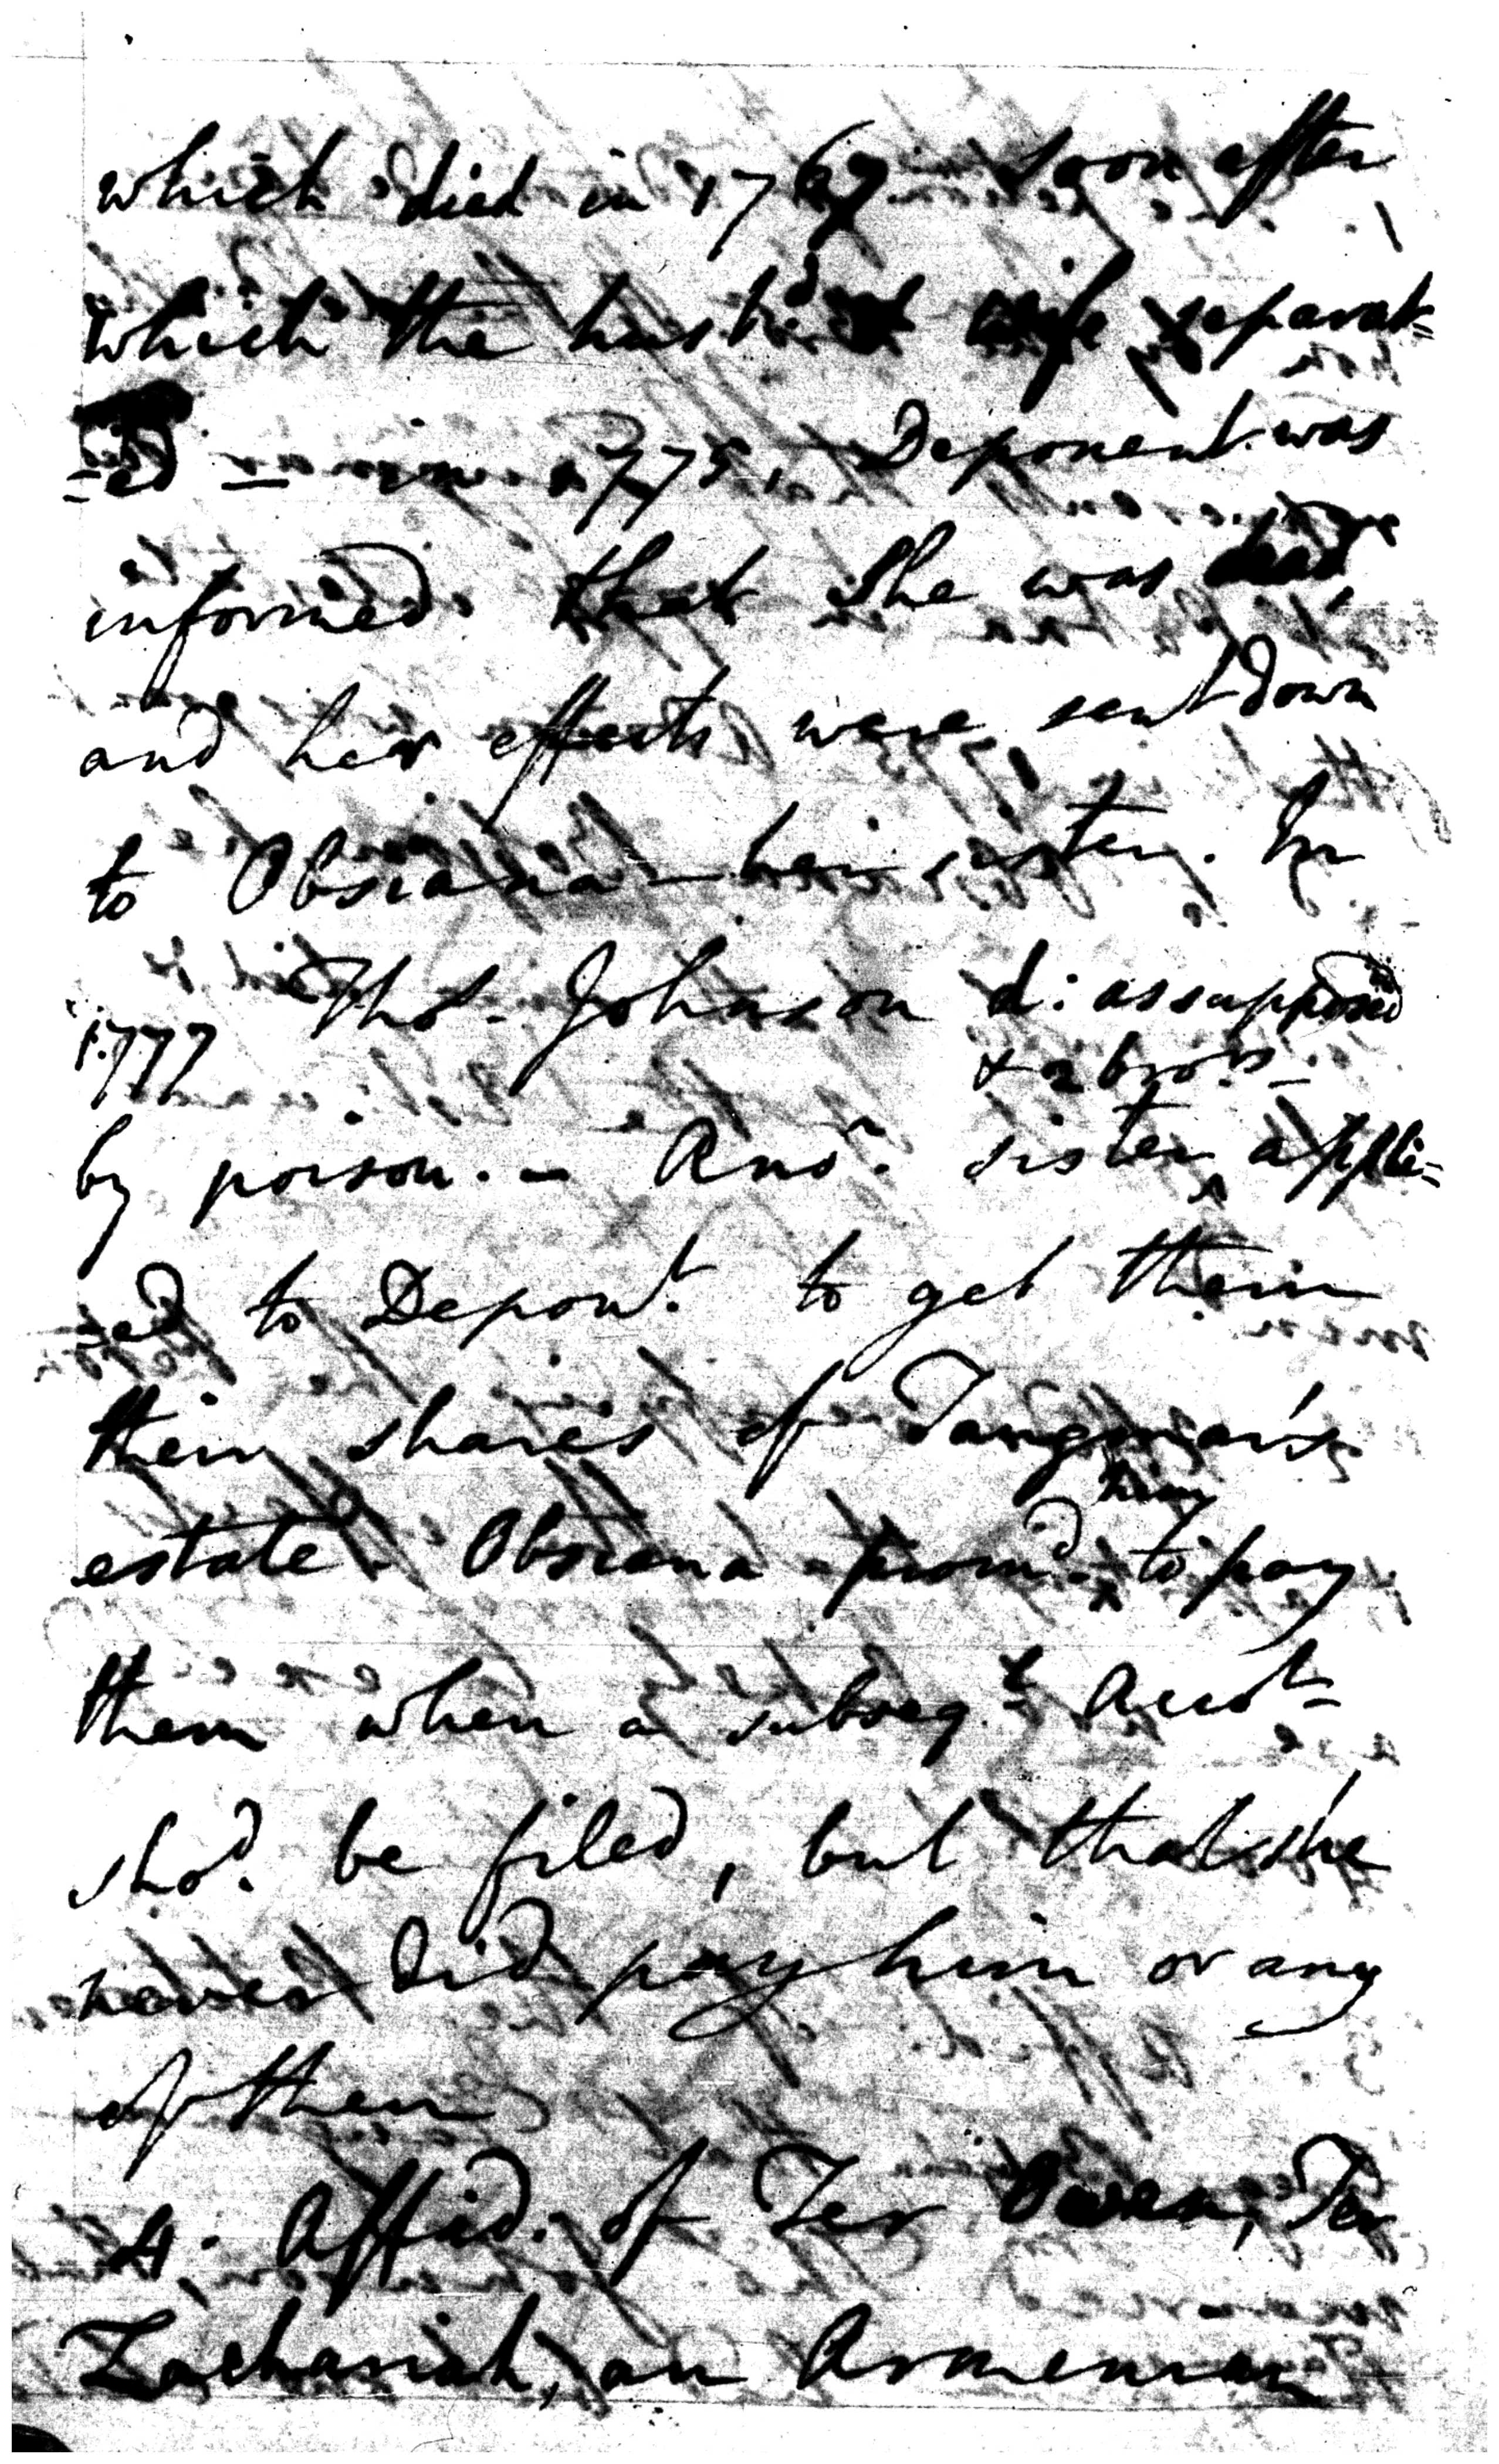 which died in 1767 soon after
which the husbd. & wife separat=
=ed — in 1775, Deponent was
informed that she was dead,
and her effects were sent down
to Obsiana — her sister. In
1777 Thos. Johnson d: as supposed
by poison. — Ano. sister & 2 bros. appli=
=ed to Depont. to get them
their shares of Tangman's
estate. Obsiana promd. him to pay
them when a subseqt. Acct.
shod. be filed, but that she
never did pay him or any
of them
4. Affid. of Ter Owen, Ter
Zachariah, an Armenian